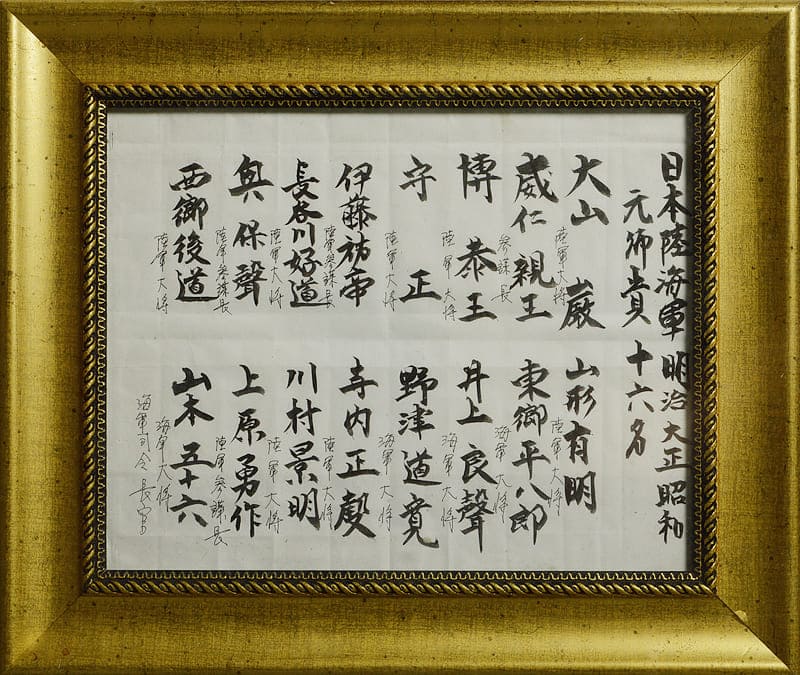 日本陸海軍明治大正昭和
元帅貴十六名
大山巌
陸軍大将
威仁親王
参謀長
博恭王
陸軍大将
守正
陸軍大将
伊藤祐帝
陸軍参謀長
長谷川好道
陸軍大将
奥保聲
陸軍参謀長
西郷後道
陸軍大将
山形有明
陸軍大将
東郷平八郎
海軍大将
井上良聲
海軍大将
野津道貫
海軍大将
寺内正毅
陸軍大将
川村景明
陸軍大将
上原勇作
陸軍参謀長
山本五十六
海軍大将
海軍司令長官